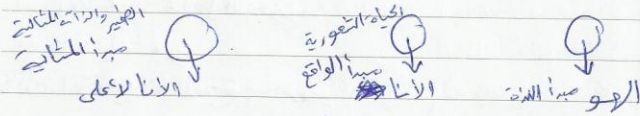 الضمير والذات المثالية
مبدأ المثالية
الأنا الأعلى
الحياة الشعورية
مبدأ الواقع
الأنا
الهو مبدأ اللذة